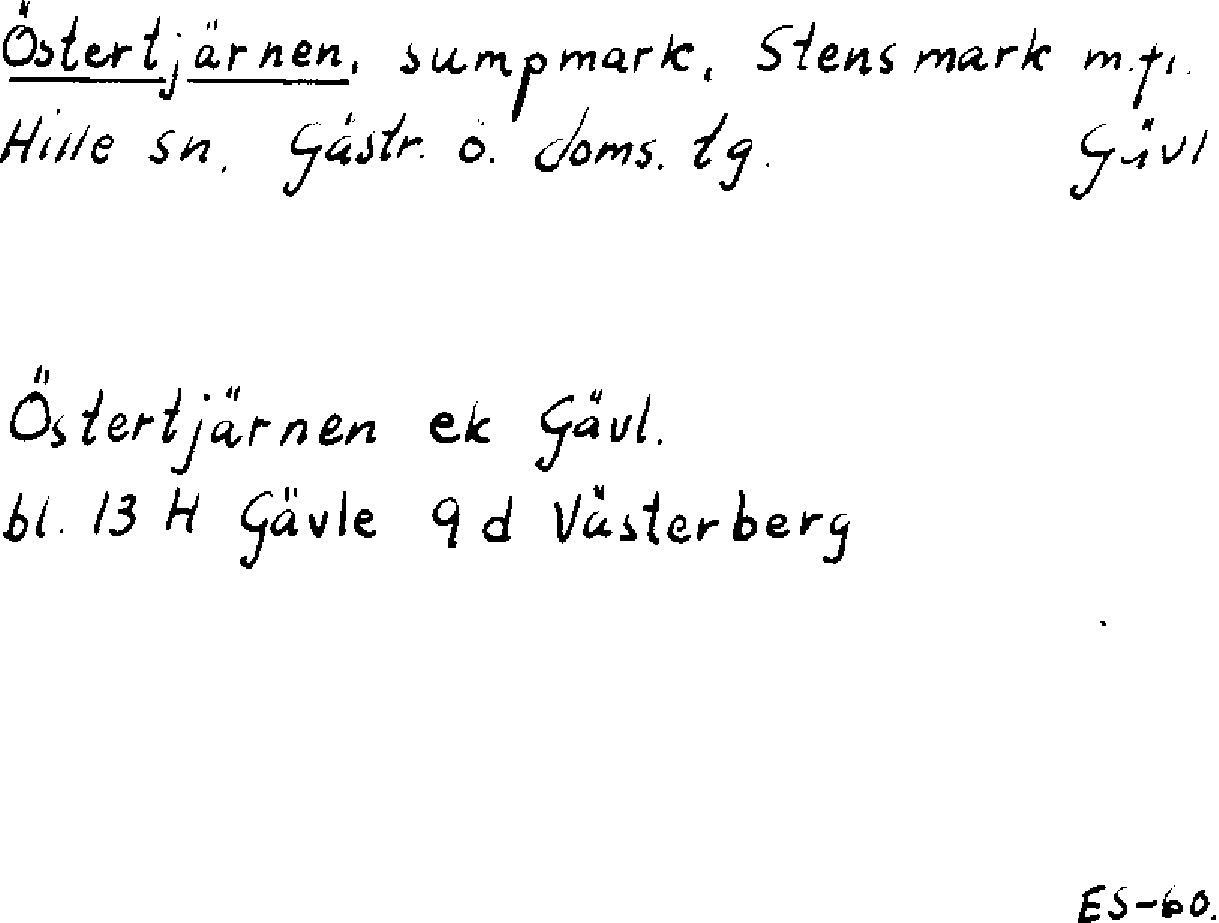 Östertjärnen, sumpmark, Stensmark m.fl.
Hille sn. Gästr. ö. doms. tg. Gävl
Östertjärnen ek Gävl.
bl. 13 H Gävle 9 d Västerberg
ES-60.